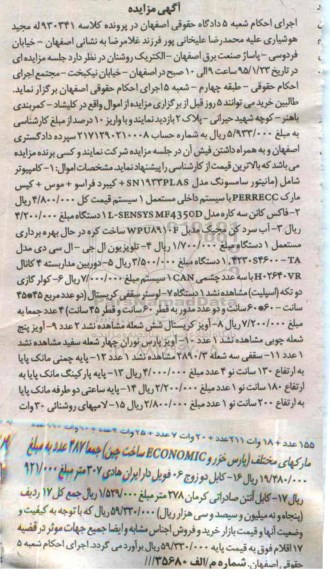 آگهی مزایده
اجرای احکام شعبه ۵ دادگاه حقوقی اصفهان در پرونده کلاسه ۹۳۰۳۴۱ له مجید
هوشیاری علیه محمدرضا علیخانی پور فرزند غلامرضا به نشانی اصفهان - خیابان
فردوسی - پاساژ صنعت برق اصفهان - الکتریک روشتان در نظر دارد جلسه مزایده ای
در تاریخ ۹۵/۱/۲۳ ساعت ۹ الی ۱۰ صبح در اصفهان - خیابان نیکبخت - مجتمع اجرای
احکام حقوقی - طبقه چهارم - شعبه ۵ اجرای احکام حقوقی اصفهان برگزار نماید.
طالبین خرید می توانند ۵ روز قبل از برگزاری مزایده از اموال واقع در کلیشاد - کمربندی
باهنر - کوچه شهید حیرانی - پلاک ۲ بازدید نمایند و با واریز ۱۰ درصد از مبلغ کارشناسی
به مبلغ ۵/۹۳۳/۰۰۰ ریال به شماره حساب ۲۱۷۱۲۹۰۲۱۰۰۰۸ سپرده دادگستری
اصفهان و به همراه داشتن فیش آن در جلسه مزایده شرکت نمایند و کسی برنده مزایده
می باشد که بالاترین قیمت از کارشناسی را پیشنهاد نماید. مشخصات اموال: ۱- کامپیوتر
شامل (مانیتور سامسونگ مدل SN۱۹۳۳PLAS + کیبرد فراسو + موس + کیس
مارک PERRECC با سیستم داخلی مستعمل ۱ سیستم قیمت کل ۴/۸۰۰/۰۰۰ ریال
۲- فاکس کانن سه کاره مدل L-SENSYS MF۴۳۵۰D ۱ دستگاه مبلغ ۴/۲۰۰/۰۰۰
ریال ۳- آب سرد کن یخچک مدل WPUA۹۱۰F ساخت کره در حال بهره برداری
مستعمل ۱ دستگاه مبلغ ۱/۷۰۰/۰۰۰ ریال ۴- تلویزیون ال جی - ال سی دی مدل
۴۲۳۰S۴۶۰۰-TA، ۱ دستگاه مبلغ ۳/۵۰۰/۰۰۰ ریال ۵- دوربین مداربسته ۴ کانال
H۰۲۶۴۰VR با سه عدد چشمی CAN ۱ سیستم مبلغ ۷/۰۰۰/۰۰۰ ریال ۶- کولر گازی
دو تکه (اسپلیت) مشاهده نشد ۱ دستگاه ۷- لوستر سقفی کریستال (دو عدد مربع ۴۵*۴۵
سانت - ۶۰*۶۰ سانت و دو عدد مدور به قطر ۶۰ سانت و قطر ۴۵ سانت) ۴ عدد جمعا به
مبلغ ۷/۲۰۰/۰۰۰ ریال ۸- آویز کریستال شش شعله مشاهده نشد ۲ عدد ۹- آویز پنج
شعله چوبی مشاهده نشد ۱ عدد ۱۰- آویز پارس نوران چهار شعله سفید مشاهده نشد
۱ عدد ۱۱- سقفی سه شعله ۲۸۹۰/۳ مشاهده نشد ۱ عدد ۱۲- پایه چمنی مانک پایا
به ارتفاع ۱۳۰ سانت نو ۴ عدد مبلغ ۴/۰۰۰/۰۰۰ ریال ۱۳- پایه پارکینگ مانک پایا به
ارتفاع ۱۸۰ سانت نو ۱ عدد مبلغ ۲/۲۰۰/۰۰۰ ریال ۱۴- پایه ساعتی دو طرفه مانک پایا
به ارتفاع ۲۰۰ سانت نو ۱ عدد مبلغ ۲/۸۰۰/۰۰۰ ریال ۱۵- لامپهای روشنائی ۳۰ وات
۱۵۵ عدد + ۱۸ وات ۲۱۱ عدد + ۲۰ وات ۷ عدد + ۲۵ وات
مارکهای مختلف (پارس خزر و ECONOMIC ساخت چین) جمعا ۴۸۷ عدد به مبلغ
۱۹/۲۸۰/۰۰۰ ریال ۱۶- کابل دو زوج ۰۶ فویل دار ایران هادی ۳۰۷ متر مبلغ ۹۲۱/۰۰۰
ریال ۱۷- کابل آنتن صادراتی کرمان ۲۷۸ متر مبلغ ۱/۵۲۹/۰۰۰ ریال جمع کل ۱۷ ردیف
(پنجاه و نه میلیون و سیصد و سی هزار ریال) ۵۹/۳۳۰/۰۰۰ ریال که با توجه به کیفیت و
وضعیت آنها و قیمت بازار خرید و فروش اجناس مشابه و ایضا جمیع جهات موثر در قضیه
۱۷ اقلام فوق به قیمت پایه ۵۹/۳۳۰/۰۰۰ ریال برآورد می گردد. اجرای احکام شعبه ۵
حقوقی اصفهان. شماره م/الف ۳۵۶۸۰///